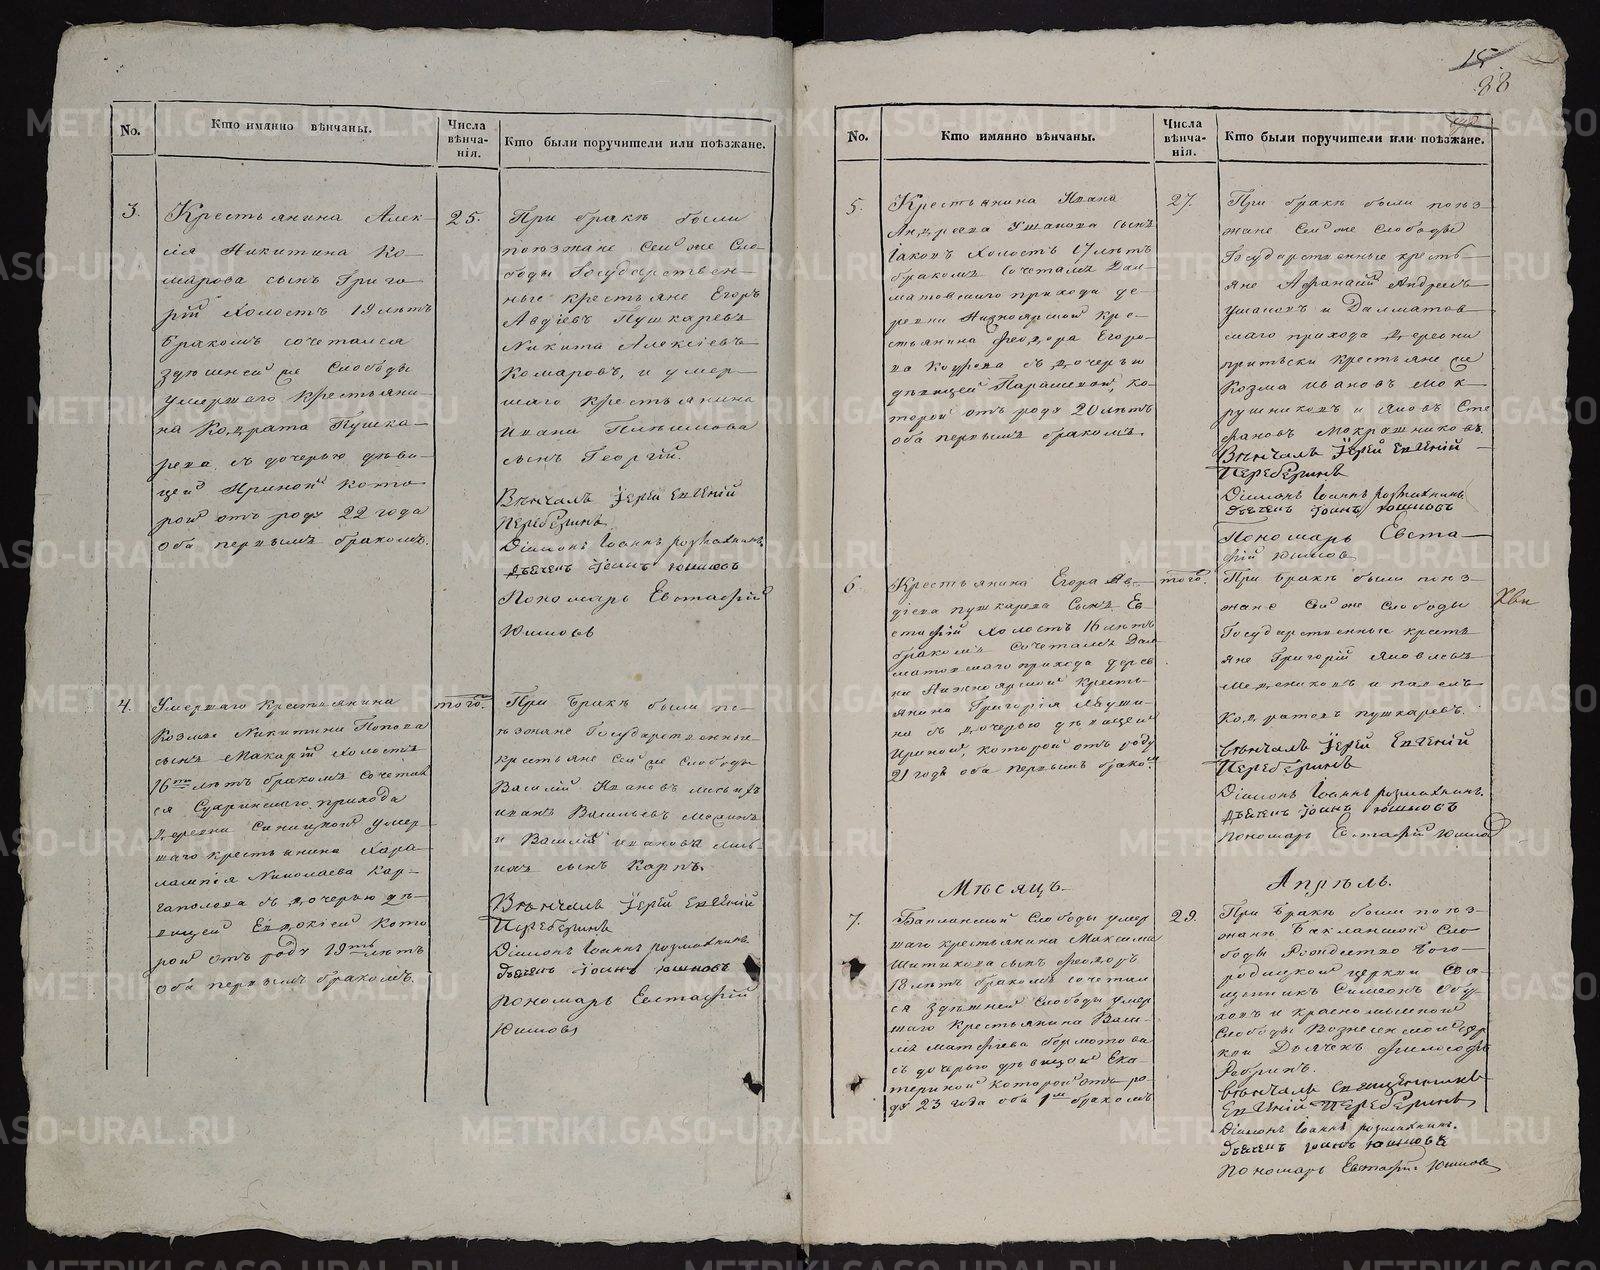 No.
Кто имянно вѣнчаны.
Числа
вѣнча-
нія.
Кто были поручители или поѣзжане.
3.
Крестьянина Алек-
сія Никитина Ко-
марова сынъ Григо
рій холостъ 19 лѣтъ
бракомъ сочетался
здѣшней же Слободы
умершаго крестьяни-
на Кондрата Пушка-
рева съ дочерью дѣви-
цей Ириной кото
рой отъ роду 22 года
оба первымъ бракомъ.
25.
При бракѣ были
поѣзжане Сей же Сло-
боды Государствен-
ные крестьяне Егоръ
Авдіевъ Пушкаревъ
Никита Алексіевъ
Комаровъ, и умер-
шаго крестьянина
Ивана
сынъ Георгій.
Вѣнчалъ Іерей Евгеній
Переберинъ
Діаконъ Іоаннъ
Дьячекъ Іоаннъ Юшковъ
Пономарь Евстафій
Юшковъ
4.
Умершаго крестьянина
Козмы Никитина Попова
сынъ Макарій холостъ
16ти лѣтъ бракомъ сочетал
ся прихода
деревни умер
шаго крестьянина Хара
лампія Николаева Кар-
гаполова съ дочерью дѣ-
вицей Евдокіей кото
рой отъ роду 19ть лѣтъ
оба первымъ бракомъ.
того.
При бракѣ были по-
ѣзжане Государственные
крестьяне Сей же Слободы
Василій Ивановъ
иванъ Васильевъ
и Василія Иванова
сынъ Карпъ.
Вѣнчалъ Іерей Евгеній
Переберинъ
Діаконъ Іоаннъ
Дьячекъ Іоаннъ Юшковъ
Пономарь Евстафій
Юшковъ
15
88
No.
Кто имянно вѣнчаны.
Числа
вѣнча-
нія.
Кто были поручители или поѣзжане.
5.
Крестьянина Ивана
Андреева Ушакова сынъ
Іаковъ холостъ 17 лѣтъ
бракомъ сочетался Дал-
матовскаго прихода де-
ревни Нижноярской кре-
стьянина Феодора Егоро-
ва съ дочерью
дѣвицей Параскевой, ко-
торой отъ роду 20 лѣтъ
оба первымъ бракомъ.
27.
При бракѣ были поѣз
жане Сей же Слободы
Государственные кресть-
яне Афанасій Андреевъ
Ушаковъ и Далматов
скаго прихода деревни
крестьяне
Козма Ивановъ Мок
рушниковъ и Яковъ Сте
фановъ Мокрушниковъ.
Вѣнчалъ Іерей Евгеній
Переберинъ
Діаконъ Іоаннъ
Дьячекъ Іоаннъ Юшковъ
Пономарь Евста-
фій Юшковъ
6
Крестьянина Егора Ав-
діева пушкарева сынъ Ев
стафій холостъ 16 лѣтъ
бракомъ сочетался Дал
матовскаго прихода дерев
ни Нижноярской кресть-
янина Григорія
на съ дочерью дѣвицей
Ириной, которой отъ роду
21 годъ оба первымъ браком.
того.
При бракѣ были поѣз-
жане Сей же Слободы
Государственные кресть
яне Григорій Яковлевъ
Медниковъ и павелъ
Кондратовъ пушкаревъ.
вѣнчалъ Іерей Евгеній
Переберинъ
Діаконъ Іоаннъ
Дьячекъ Іоаннъ Юшковъ
пономарь Евстафій Юшков
Мѣсяцъ
Апрѣль.
7.
Бакланской Слободы умер
шаго крестьянина Максима
Шитикова сынъ Феодоръ
18 лѣтъ бракомъ сочетал
ся здѣшней Слободы умер
шаго крестьянина Васи-
лія матфѣева Бормотова
съ дочерью дѣвицей Ека-
териной которой отъ ро-
ду 23 года оба 1м бракомъ
29.
При бракѣ были поѣз-
жане Бакланской Сло
боды Рождество Бого-
родицкой церкви Свя-
щенникъ Симеонъ
и красномысской
Слободы Вознесенской цер
кви Дьячекъ
вѣнчалъ священникъ
Евгеній Переберинъ
Діаконъ Іоаннъ
Дьячекъ Іоаннъ Юшковъ
Пономарь Евстафій Юшковъ
METRIKI.GASO-URAL.RU